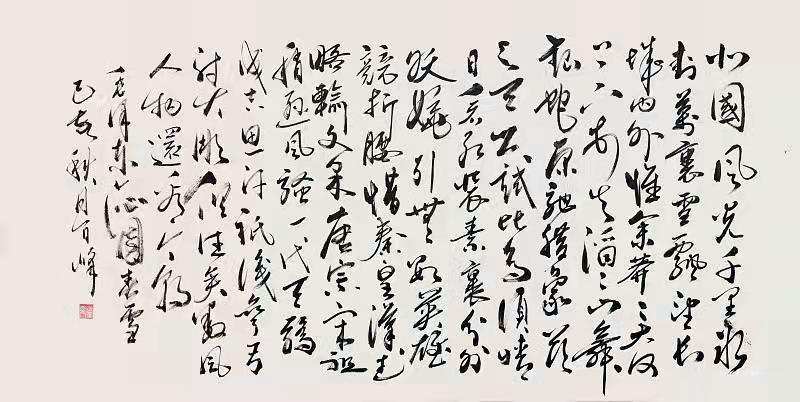 北國風光千里冰
封萬裏雪飄望長
城内外惟余莽莽大河
上下頓失滔滔山舞
銀蛇原馳蠟象欲
与天公試比高須晴
日看紅裝素裹分外
妖嬈引無數英雄
競折腰惜秦皇漢武
略輸文采唐宗宋祖
稍遜風騷一代天驕
成吉思汗祇識彎弓
射大雕俱往矣數風
人物還看今朝
毛澤東沁園春雪
己亥秋月峰